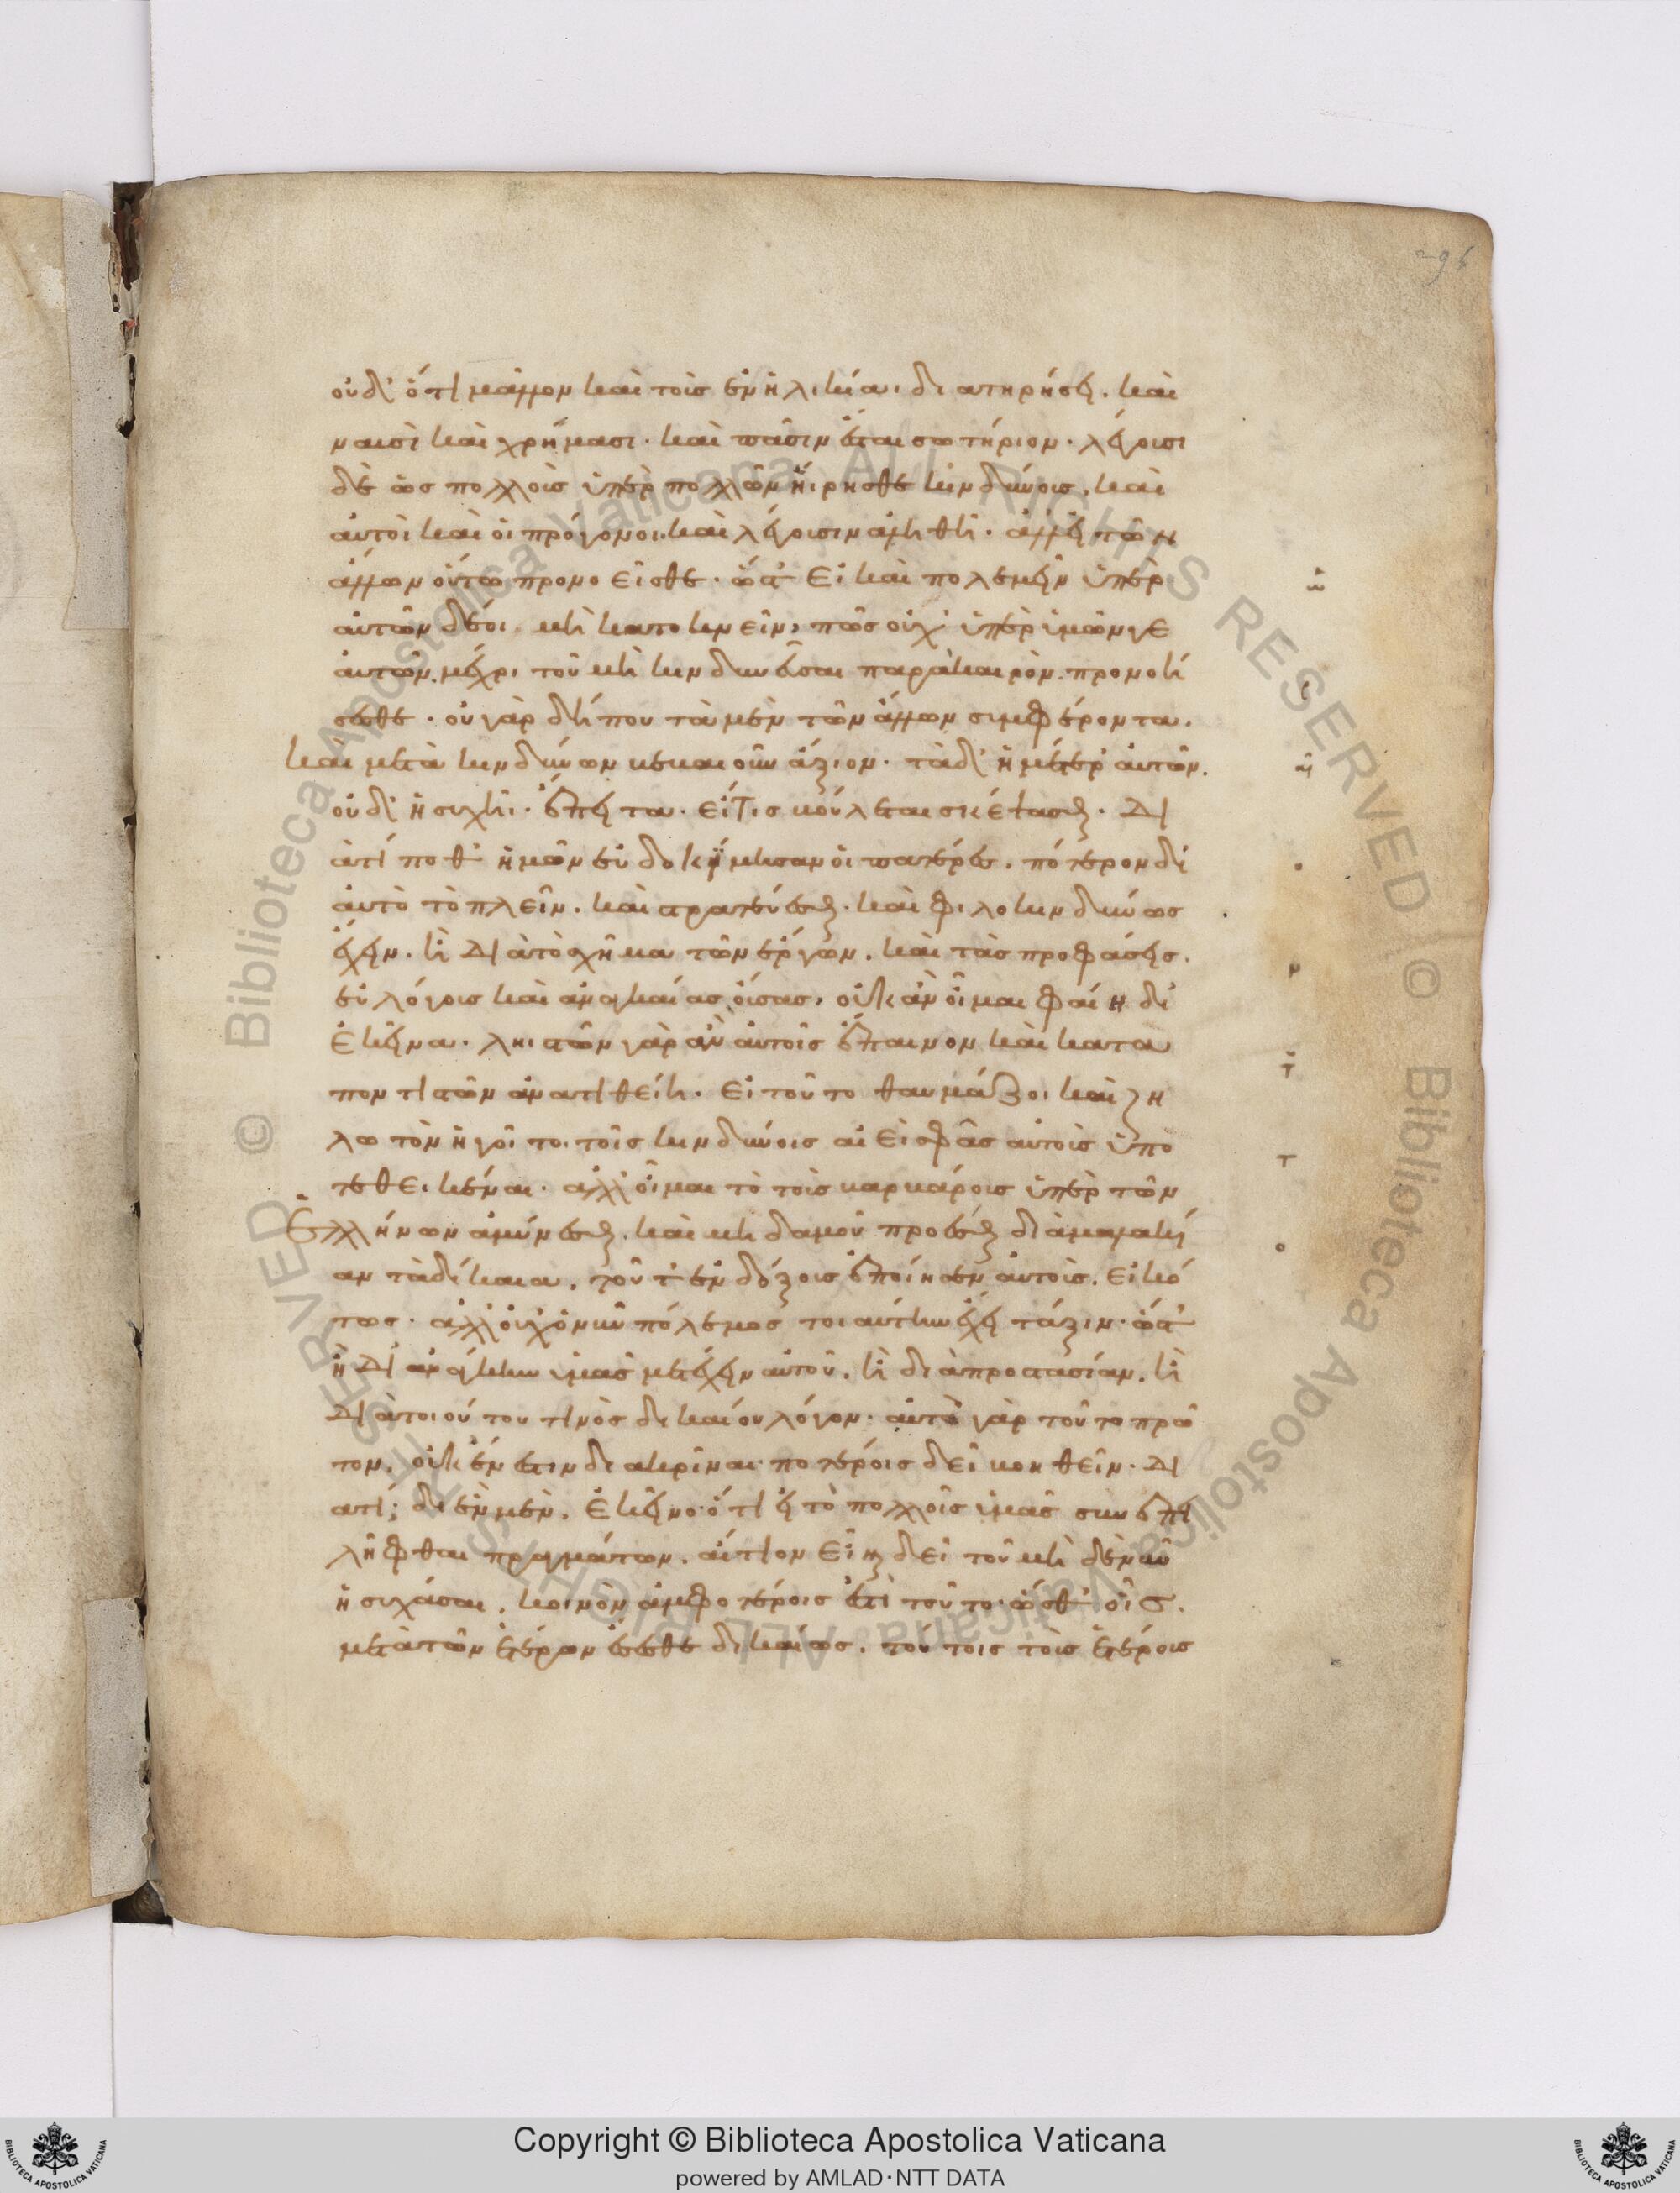 296
οὐδ' ὅτι μᾶλλον καὶ τοῖς ἐν ἡλικίαι διατηρήσει. καὶ
ναυσὶ καὶ χρήμασι. καὶ πᾶσιν ἔσται σωτήριον. λέγουσι
δὲ ὡς πολλοῖς ὑπὲρ πολλῶν ἤιρησθε κινδύνοις. καὶ
αὐτοὶ καὶ οἱ πρόγονοι. καὶ λέγουσιν ἀληθῆ. ἀλλ' εἰ τῶν
ἄλλων οὕτω προνοεῖσθε. ὥστ' εἰ καὶ πολεμεῖν ὑπὲρ
αὐτῶν δέοι, μὴ κατοκνεῖν, πῶς οὐχ' ὑπὲρ ὑμῶν γε
αὐτῶν. μέχρι τοῦ μὴ κινδυνεῦσαι παρὰ καιρὸν. προνοή
σεσθε. οὐ γὰρ δήπου τὰ μὲν τῶν ἄλλων συμφέροντα.
καὶ μετὰ κινδύνων βεβαιοῦν ἄξιον. τὰ δ' ἡμέτερ' αὐτῶν.
οὐδ' ἡσυχῆι. ἔπειτα. εἴ τις βούλεται σκέψασθαι. δι
ατί ποθ' ἡμῶν εὐδοκίμησαν οἱ πατέρες. πότερον δι'
αὐτὸ τὸ πλεῖν. καὶ στρατεύεσθαι. καὶ φιλοκινδύνως
ἔχειν. ἢ διὰ τὸ σχῆμα τῶν ἔργων. καὶ τὰς προφάσεις.
εὐλόγους καὶ ἀναγκαίας οὔσας, οὐκ ἂν οἶμαι φαίη δι'
ἐκεῖνα. ληιστῶν γὰρ ἂν αὐτοῖς ἔπαινον καὶ κατα
ποντιστῶν ἀνατιθείη. εἰ τοῦτο θαυμάζοι καὶ ζη
λωτὸν ἡγοῖτο. τοῖς κινδύνοις ἀεὶ σφᾶς αὐτοὺς ὑπο
τεθεικέναι. ἀλλ' οἶμαι τὸ τοῖς βαρβάροις ὑπὲρ τῶν
Ἑλλήνων ἀμύνεσθαι. καὶ μηδαμοῦ προέσθαι δι' ἀμαχανί
αν τὰ δίκαια. τοῦτ' ἐνδόξους ἐποίησεν αὐτοὺς. εἰκό
τως. ἀλλ' οὐχ' ὁ νῦν πόλεμος τοιαύτην ἔχει τάξιν. ὥστ'
ἢ δι' ἀνάγκην ὑμᾶς μετέχειν αὐτοῦ. ἢ διὰ προστασίαν. ἢ
διὰ τοιούτου τινὸς δικαίου λόγον. αὐτὸ γὰρ τοῦτο πρῶ
τον. οὐκ ἔνεστιν διακρῖναι ποτέροις δεῖ βοηθεῖν. δι
ατί; διὰ ἓν μὲν. ἐκεῖνο. ὅτι εἰ τὸ πολλοῖς ὑμᾶς συνεπι
λῆφθαι πραγμάτων. αἴτιον εἶναι δεῖ τοῦ μηδὲν νῦν
ἡσυχάσαι. κοινὸν ἀμφοτέροις ἐστὶ τοῦτο. ὥσθ' οἷς.
μετὰ τῶν ἑτέρων ἔσεσθε δικαίως. τούτοις τοῖς ἑτέροις
Copyright © Biblioteca Apostolica Vaticana
powered by AMLAD·NTT DATA